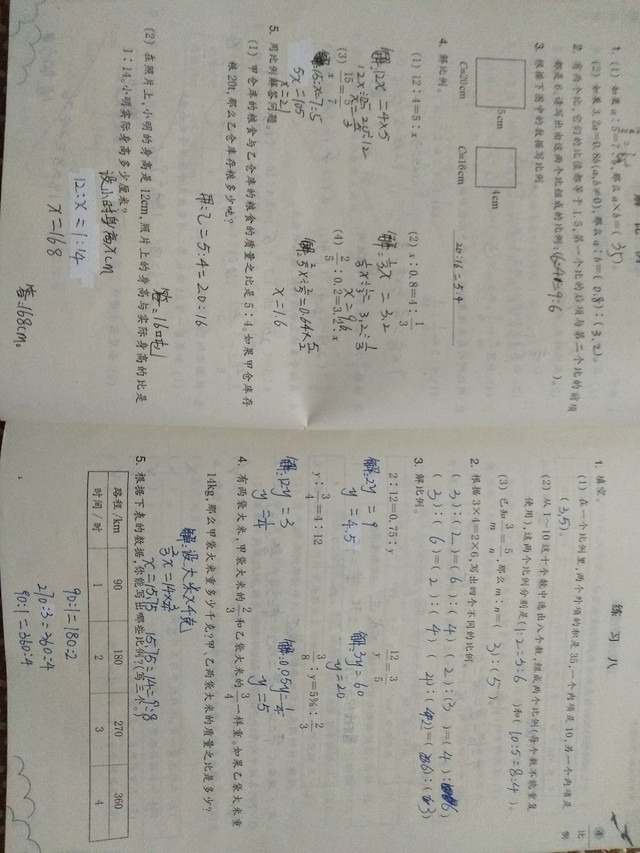 解 比 例
1. (1) 如果 a：5＝7：b，那么 a×b＝( 35 )。
(2) 如果 3.2a＝0.8b(a,b≠0)，那么 a：b＝( 0.8 )：( 3.2 )。
2. 有两个比，它们的比值都等于 1.5，第一个比的后项与第二个比的前项
都是 6，请写出由这两个比组成的比例：( )。
3. 根据下图中的数据写比例。
5cm
C=20cm
4cm
C=16cm
20:16=5:4
4. 解比例。
(1) 12：4＝5：x
解:12x=4×5
(2) x：0.8＝4：1/3
解:1/3x=3.2
x=9.6
(3) 15/x＝5/7
5x=105
x=21
(4) 2/5：0.2＝3.2：x
x=1.6
5. 用比例解答问题。
(1) 甲仓库的粮食与乙仓库的粮食的质量之比是 5：4。如果甲仓库存
粮 20t，那么乙仓库存粮多少吨？
甲:乙=5:4=20:16
(2) 在照片上，小明的身高是 12cm，照片上的身高与实际身高的比是
1：14，小明实际身高多少厘米？
12:x=1:14
x=168
答:168cm。
练 习 八
④ 比 例
1. 填空。
(1) 在一个比例里，两个外项的积是 35，一个内项是 10，另一个内项是
( 3.5 )。
(2) 从 1～10 这十个数中选出八个数，组成两个比例(每个数不能重复
使用)，这两个比例分别是( )和( 10:5=8:4 )。
(3) 已知 3/m＝5/n，那么 m：n＝( 3 )：( 5 )。
2. 根据 3×4＝2×6，写出四个不同的比例。
( 3 )：( 2 )＝( 6 )：( 4 )
( 3 )：( 6 )＝( 2 )：( 4 )
3. 解比例。
2：12＝0.75：y
解:2y=9
y=4.5
12/y＝3/5
解:3y=60
y=20
y：3/4＝4：12
解:12y=3
y=1/4
3/8：y＝5%：2/3
解:0.05y=1/4
y=5
4. 有两袋大米，甲袋大米的 2/3 和乙袋大米的 3/4 一样重。如果乙袋大米重
14kg，那么甲袋大米重多少千克？甲、乙两袋大米的质量之比是多少？
2/3x=14×3/4
x=15.75
15.75:14=9:8
5. 根据下表的数据，你能写出哪些比例？(写三个。)
路程/km 90 180 270 360
时间/时 1 2 3 4
90:1=180:2
270:3=360:4
90:1=360:4